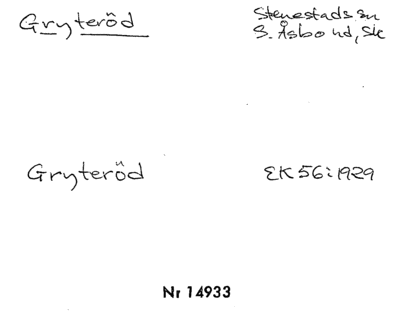 Gryteröd
Stenestads sn
S. Åsbo hd, Sk
Gryteröd
EK 56:1929
Nr 14933